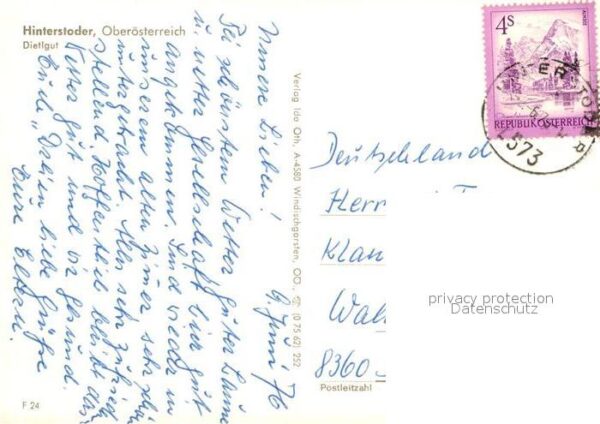 Hinterstoder, Oberösterreich
Dietlgut
9. Juni 76
Unsere Lieben!
Bei schönstem Wetter guter Laune
u. netter Gesellschaft hier gut
angekommen. Sind wieder in
unserem alten Zimmer sehr
untergebracht. Alles sehr zufrieden
stellend. Hoffentlich bleibt das
Wetter gut und Ihr gesund.
Liebe Grüße
Eure Eltern.
F 24
Verlag Ida Orth, A-4580 Windischgarsten, OÖ., ☎ (0 75 62) 252
4S
REPUBLIK ÖSTERREICH
573
Deutschland
Herr
Klau
Wal
8360
Postleitzahl
privacy protection
Datenschutz